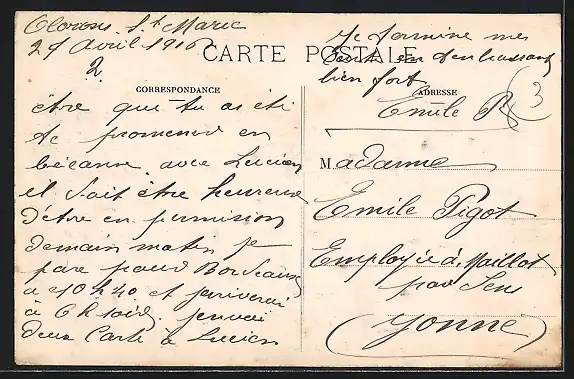 Olorons, Ste Marie
29 Avril 1916
2
CARTE POSTALE
Je termine mes
en t'embrassant
bien fort
CORRESPONDANCE
ADRESSE
Emile P
3
être que tu as été
te promener en
bécanne avec Lucien
il doit être heureux
d'être en permission
demain matin je
pare pour Bordeaux
a 10 h 40 et j'ariverai
à 6 h soir. j'envoi
deux Carte à Lucien
Madame
Emile Pigot
Employée à Maillot
par Sens
(Yonne)